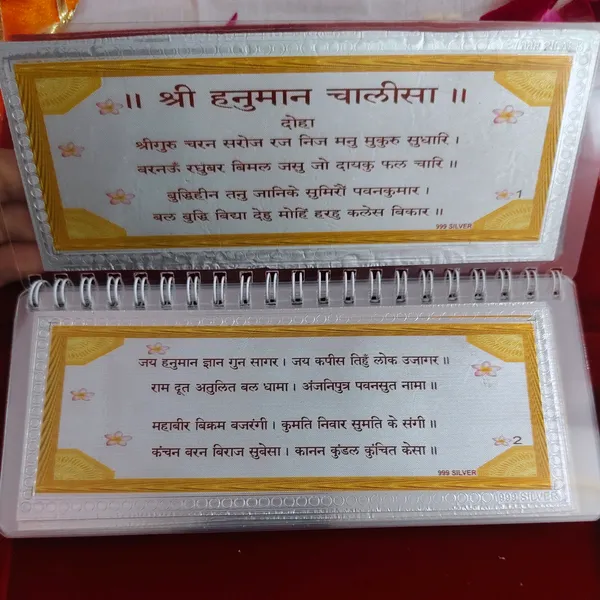 ॥ श्री हनुमान चालीसा ॥
दोहा
श्रीगुरु चरन सरोज रज निज मनु मुकुरु सुधारि ।
बरनऊँ रघुबर बिमल जसु जो दायकु फल चारि ॥
बुद्धिहीन तनु जानिके सुमिरौं पवनकुमार ।
बल बुद्धि बिद्या देहु मोहिं हरहु कलेस बिकार ॥
1
999 SILVER
जय हनुमान ज्ञान गुन सागर । जय कपीस तिहुँ लोक उजागर ॥
राम दूत अतुलित बल धामा । अंजनिपुत्र पवनसुत नामा ॥
महाबीर बिक्रम बजरंगी । कुमति निवार सुमति के संगी ॥
कंचन बरन बिराज सुबेसा । कानन कुंडल कुंचित केसा ॥
2
999 SILVER
999 SILVER